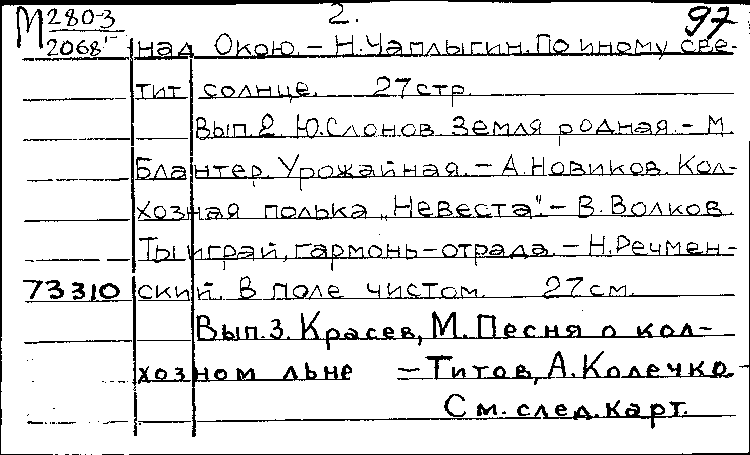 М 280-3 2. 97
2068
над Окою. – Н. Чаплыгин. По иному све-
тит солнце. 27 стр.
Вып. 2. Ю. Слонов. Земля родная. – М.
Блантер. Урожайная. – А. Новиков. Кол-
хозная полька „Невеста". – В. Волков.
Ты играй, гармонь-отрада. – Н. Речмен-
73310 ский. В поле чистом. 27 см.
Вып. 3. Красев, М. Песня о кол-
хозном льне – Титов, А. Колечко.
См. след. карт.